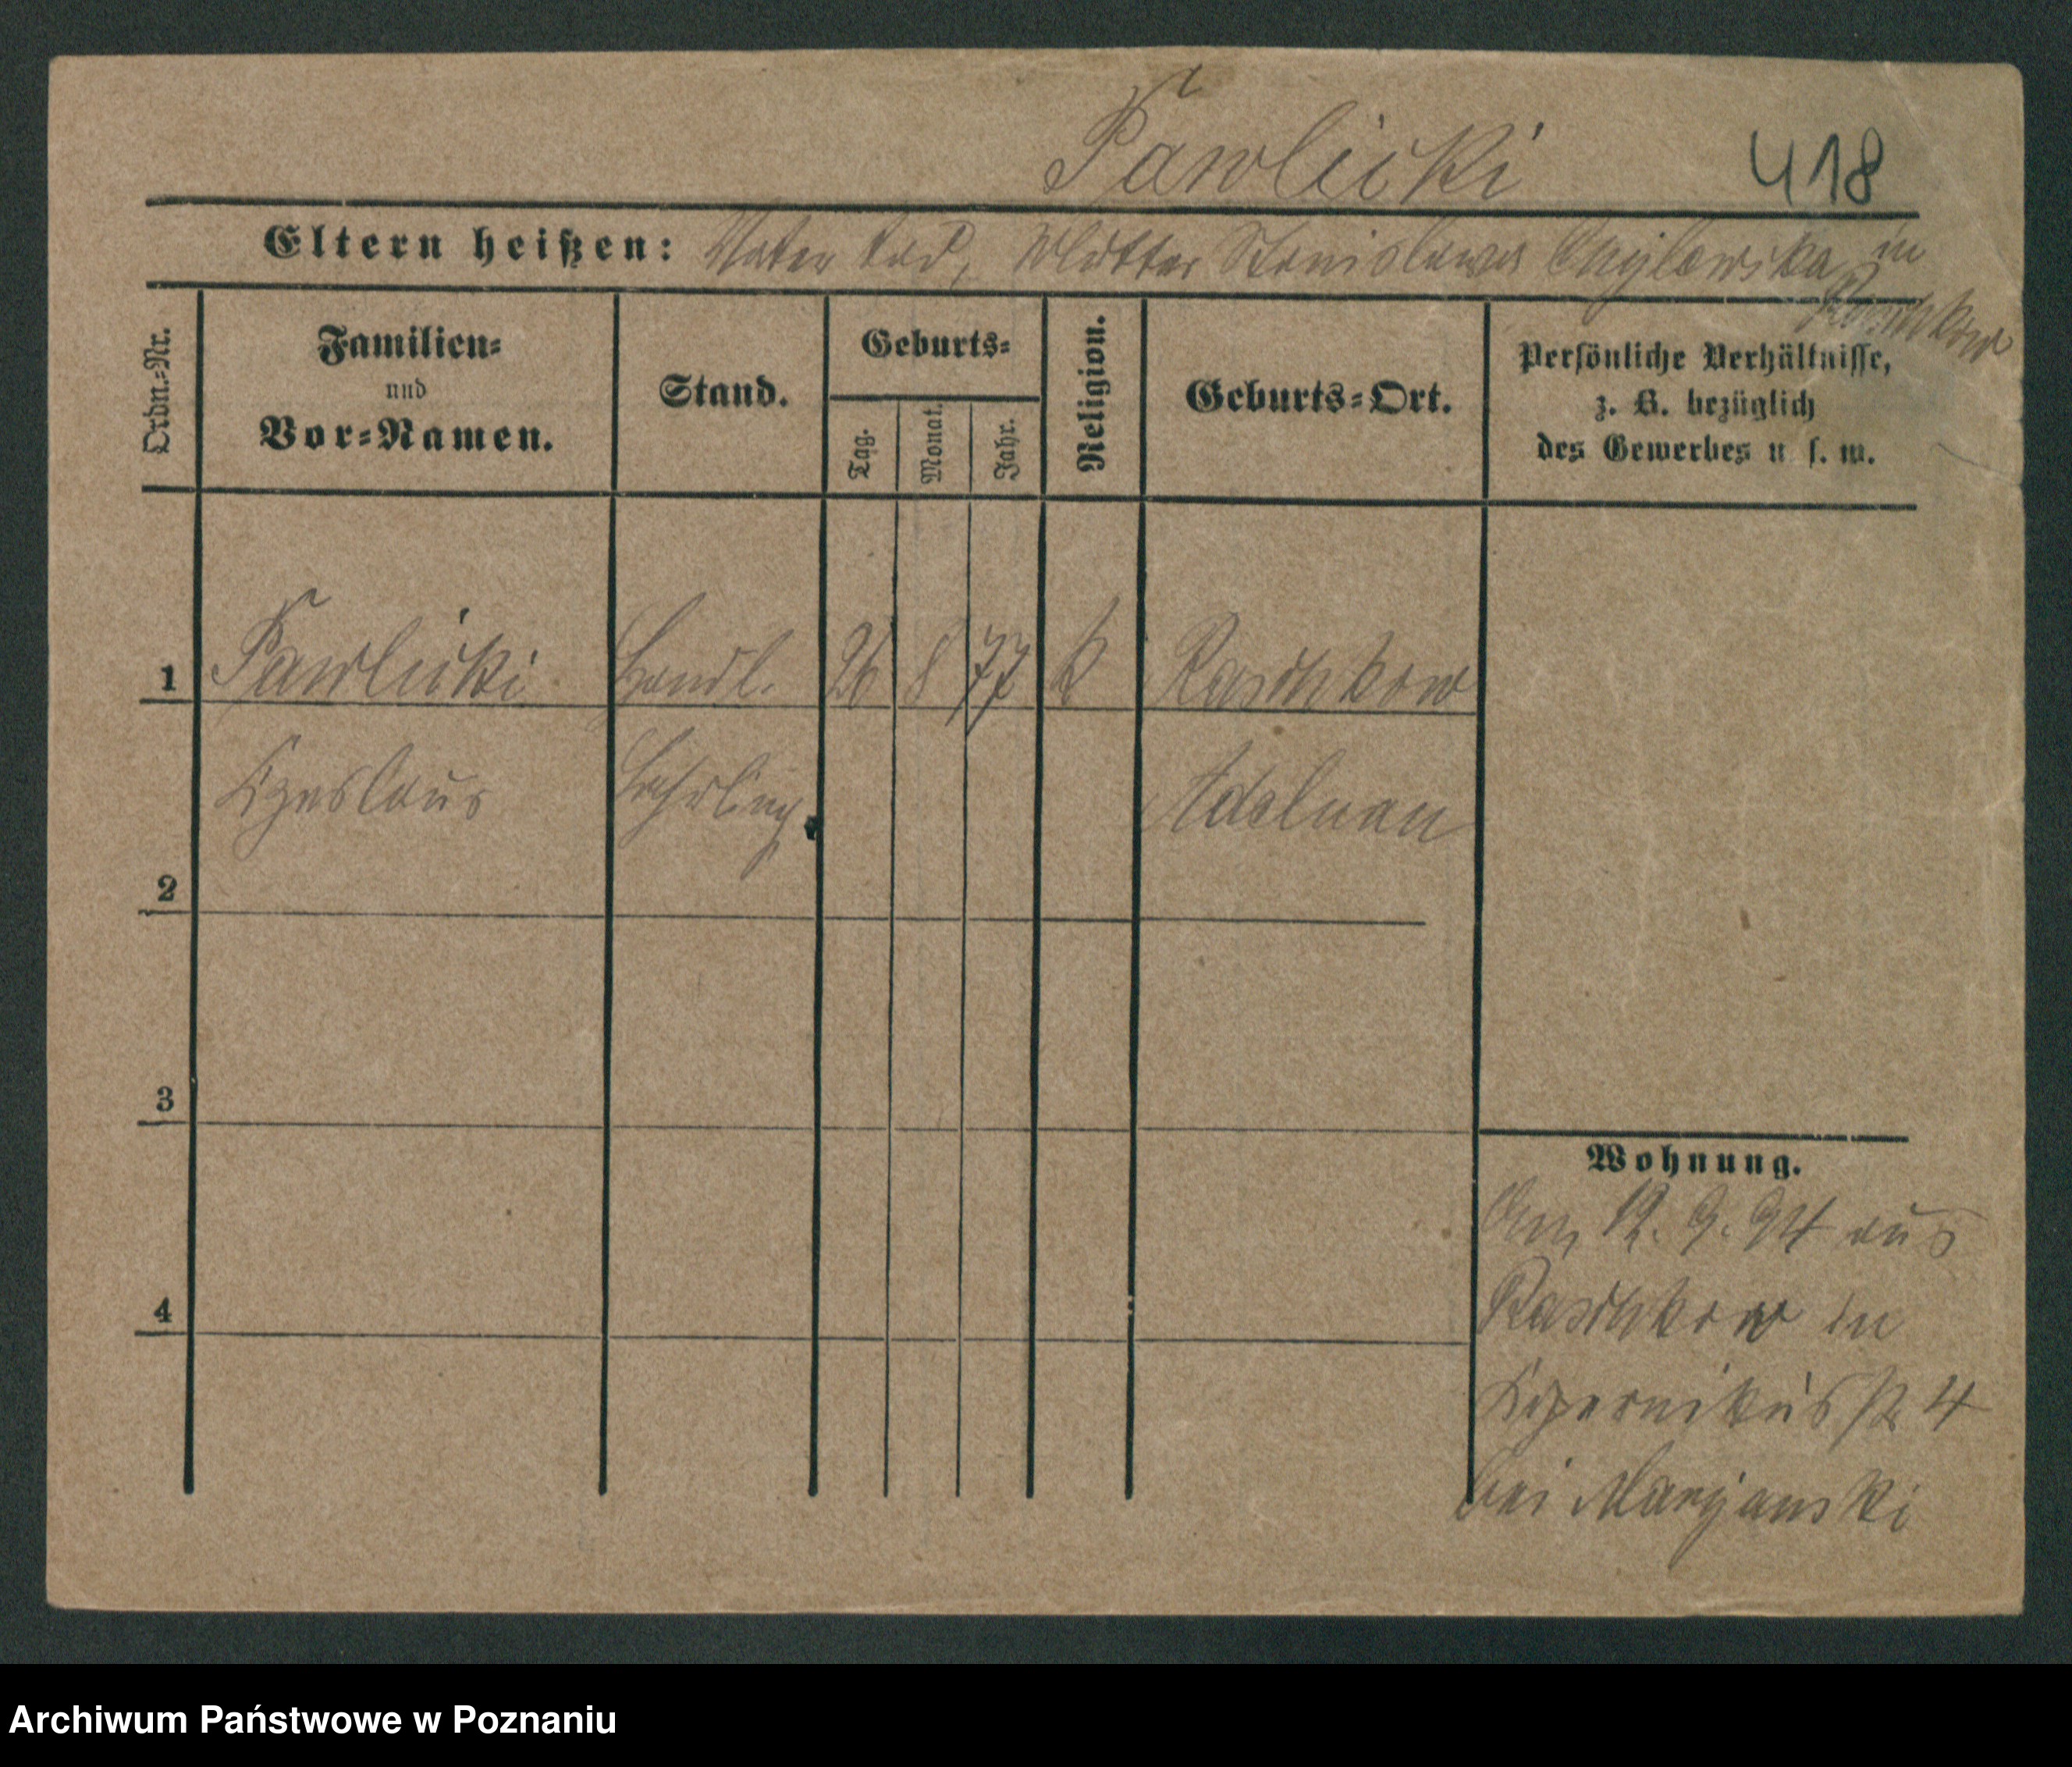 Pawlicki 418
Eltern heißen: Vater tod, Mutter Stanislawa Chylewska in
Raschkow
Ordn.=Nr.
Familien=
und
Vor=Namen.
Stand.
Geburts=
Tag.
Monat.
Jahr.
Religion.
Geburts=Ort.
Persönliche Verhältnisse,
z. B. bezüglich
des Gewerbes u. s. w.
1 Pawlicki Handl. 26 8 77 k Raschkow
Czeslaus Lehrling. Adelnau
2
3
4
Wohnung.
Am 12. 9. 94 aus
Raschkow in
str 4
bei Maryanski
Archiwum Państwowe w Poznaniu